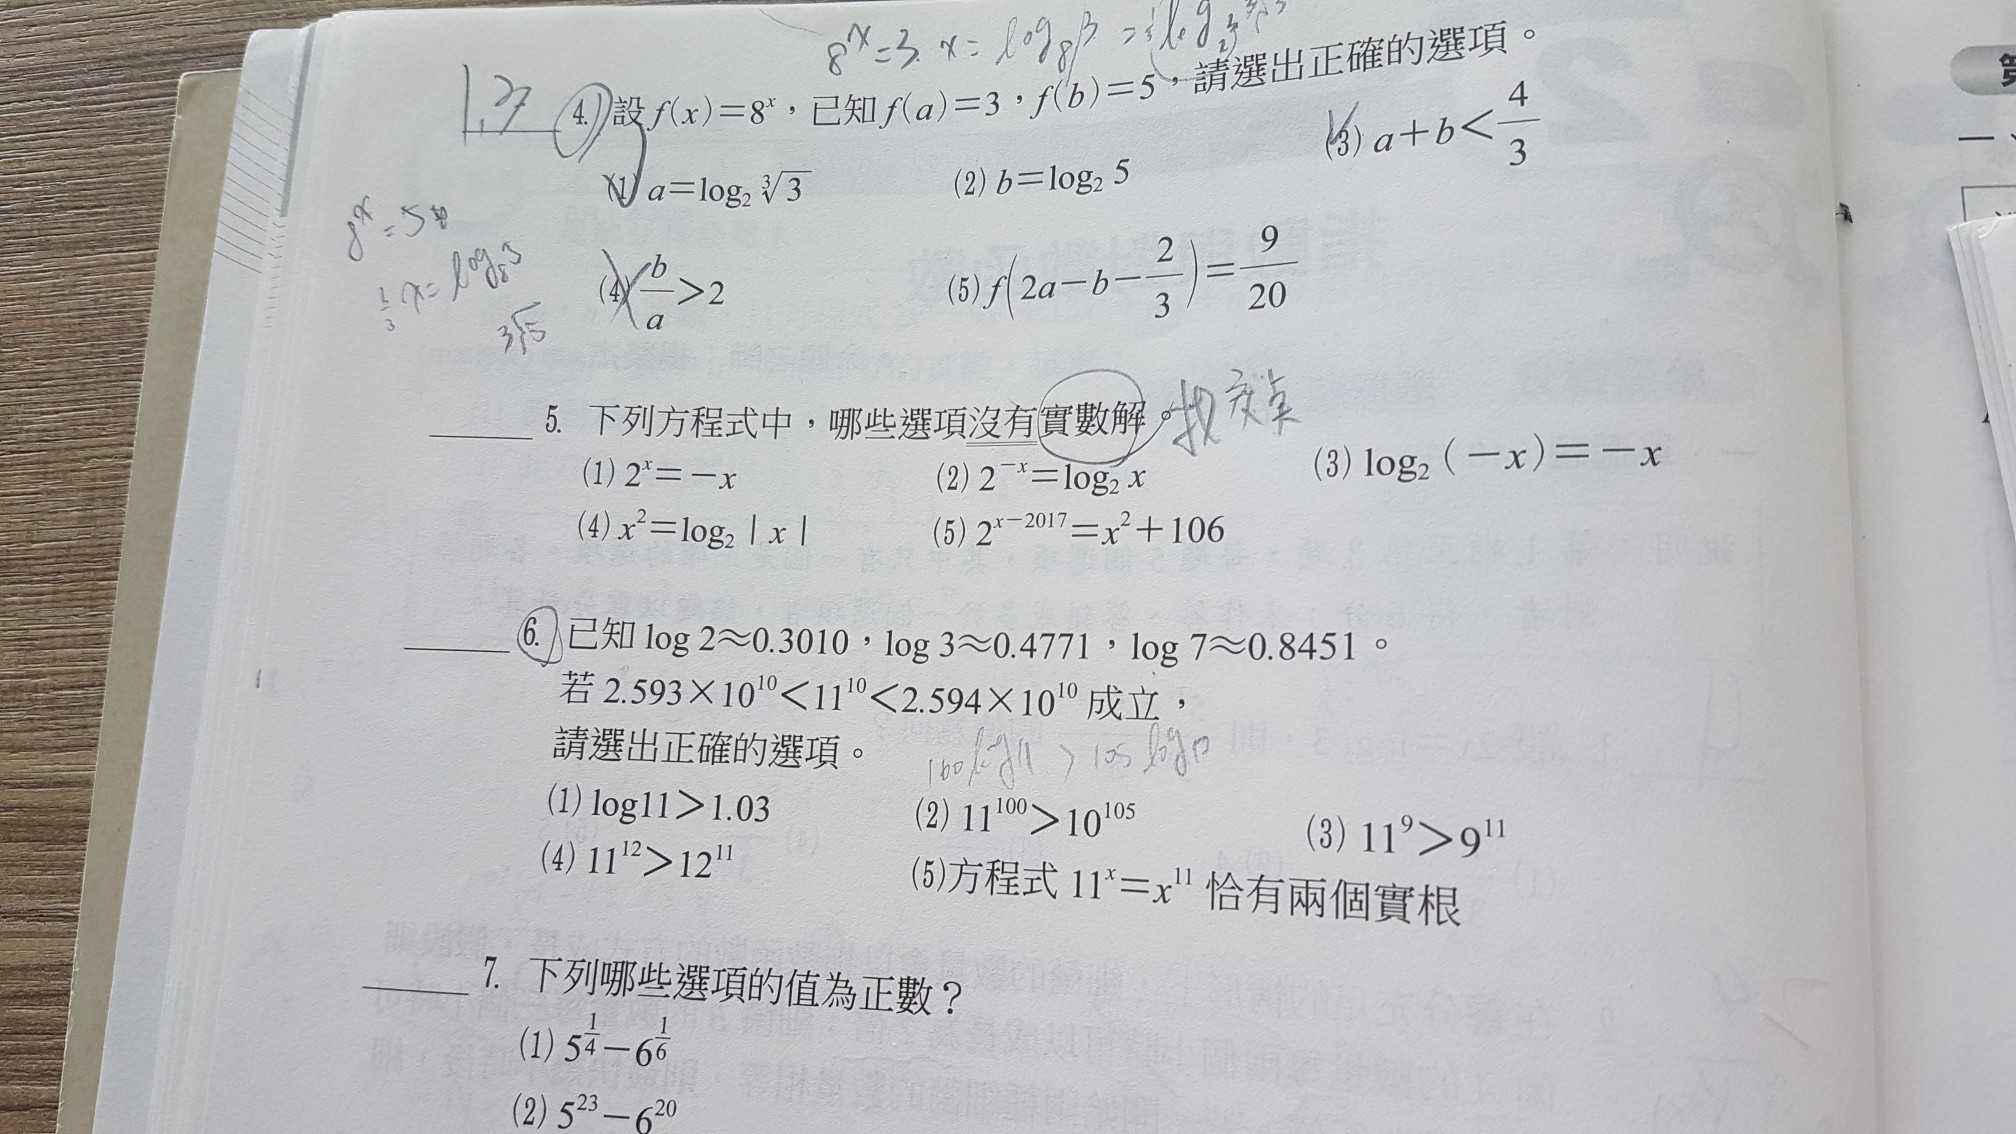 8^x=3. x=log₈3
1,3 4. 設 f(x)=8^x，已知 f(a)=3，f(b)=5，請選出正確的選項。
(1) a=log₂ ∛3 (2) b=log₂ 5 (3) a+b<4/3
8^x=5
(4) b/a>2 (5) f(2a−b−2/3)=9/20
5. 下列方程式中，哪些選項沒有實數解。找交點
(1) 2^x=−x (2) 2^−x=log₂ x (3) log₂(−x)=−x
(4) x²=log₂|x| (5) 2^x−2017=x²+106
6. 已知 log 2≈0.3010，log 3≈0.4771，log 7≈0.8451。
若 2.593×10¹⁰<11¹⁰<2.594×10¹⁰ 成立，
請選出正確的選項。 100 log11 > 105 log10
(1) log11>1.03 (2) 11¹⁰⁰>10¹⁰⁵ (3) 11⁹>9¹¹
(4) 11¹²>12¹¹ (5)方程式 11^x=x¹¹ 恰有兩個實根
7. 下列哪些選項的值為正數？
(1) 5^1/4−6^1/6
(2) 5²³−6²⁰